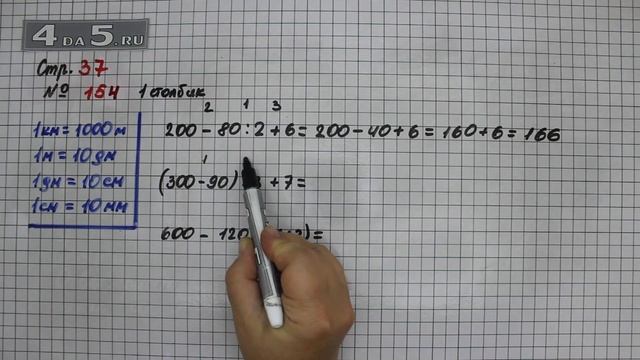 4 ДА 5.RU
Стр. 37
№ 154 1 столбик
2 1 3
1км = 1000м
1м = 10дм
1дм = 10см
1см = 10мм
200 - 80 : 2 + 6 = 200 - 40 + 6 = 160 + 6 = 166
1
(300 - 90) + 7 =
600 - 120 ) =